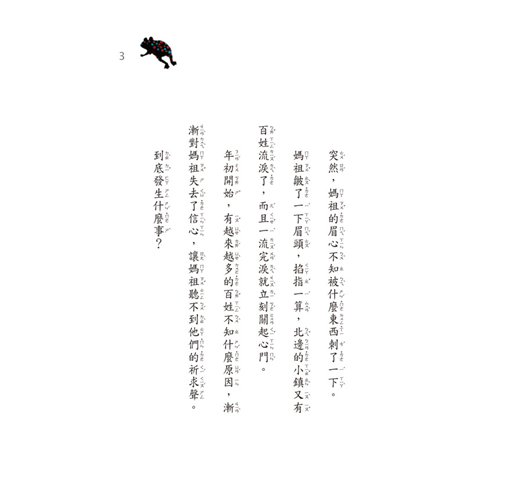 3
突然，媽祖的眉心不知被什麼東西刺了一下。
媽祖皺了一下眉頭，掐指一算，北邊的小鎮又有
百姓流淚了，而且一流完淚就立刻關起心門。
年初開始，有越來越多的百姓不知什麼原因，漸
漸對媽祖失去了信心，讓媽祖聽不到他們的祈求聲。
到底發生什麼事？